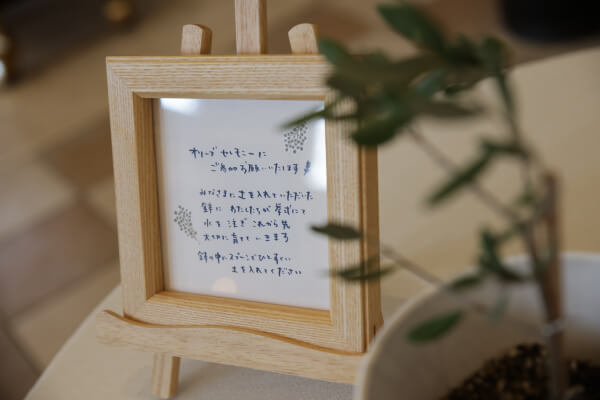 オリーブセレモニーに
ご参加お願いいたします
みなさまに 土を入れていただいた
鉢に わたしたちが 挙式にて
水を注ぎ これから先
大切に 育てて いきます
鉢の中に スプーンでひとすくい
土を入れてください